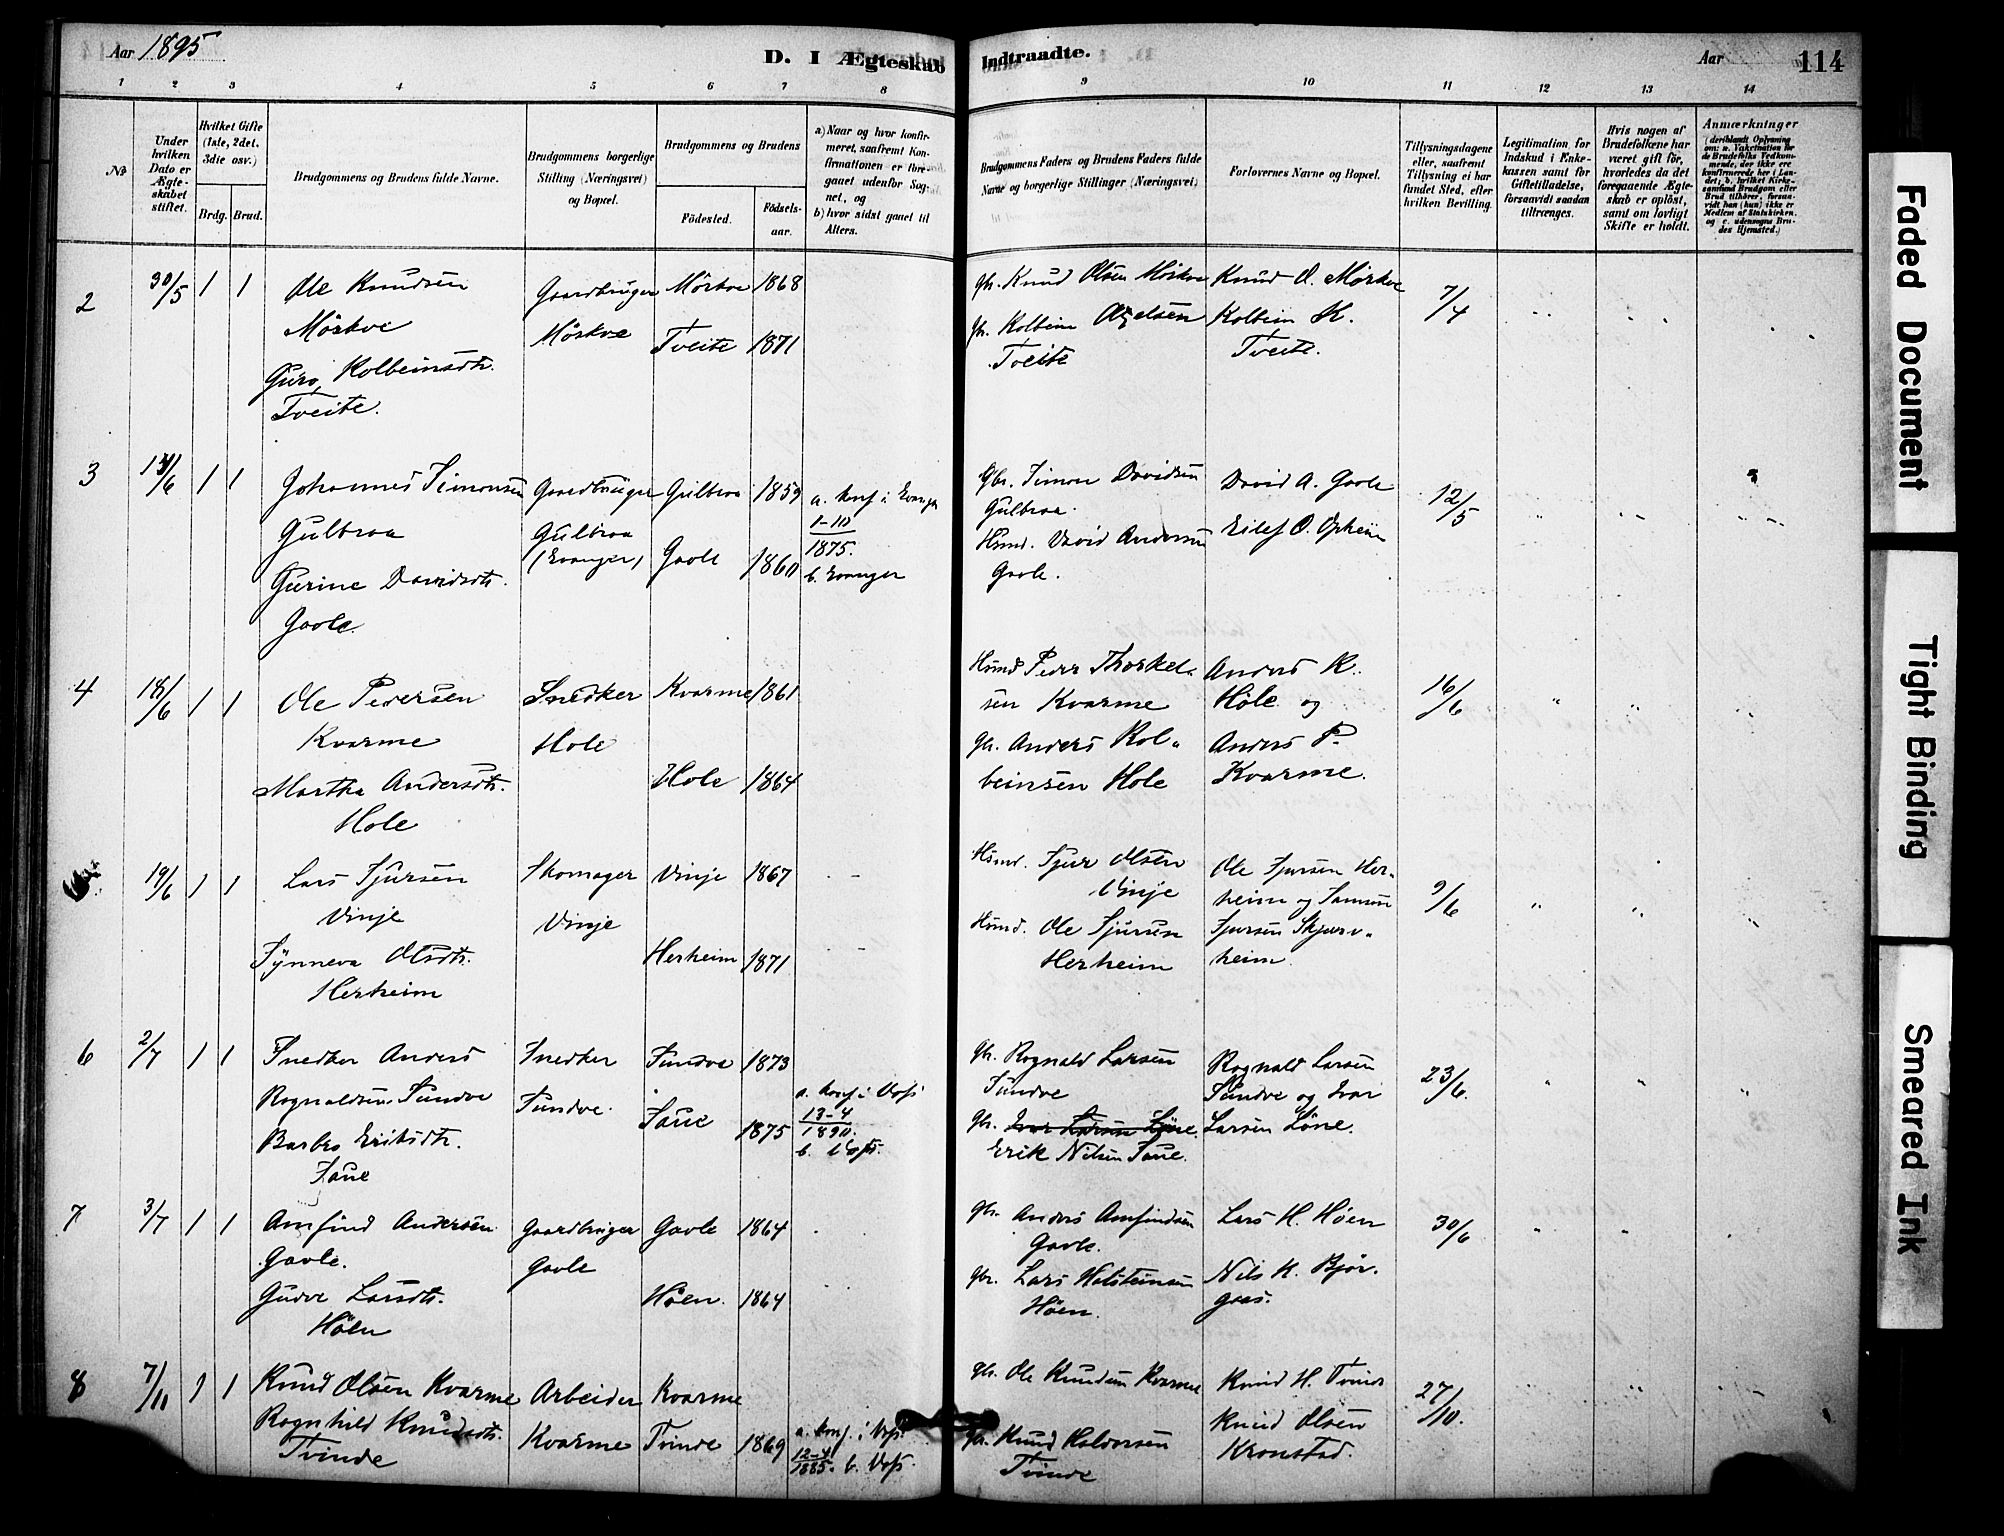 Aar 1895
D. I Ægteskab Indtraadte.
Aar 114
1 2 3 4 5 6 7 8 9 10 11 12 13 14
No
Under hvilken Dato er Ægteskabet stiftet.
Hvilket Gifte (1ste, 2det, 3die osv.)
Brdg. Brud.
Brudgommens og Brudens fulde Navne.
Brudgommens borgerlige Stilling (Næringsvei) og Bopæl.
Brudgommens og Brudens
Födested.
Födselsaar.
a) Naar og hvor konfirmeret, saafremt Konfirmationen er foregaaet udenfor Sognet, og
b) hvor sidst gaaet til Alters.
Brudgommens Faders og Brudens Faders fulde Navne og borgerlige Stillinger (Næringsvei)
Forlovernes Navne og Bopæl.
Tillysningsdagene eller, saafremt Tillysning ei har fundet Sted, efter hvilken Bevilling.
Legitimation for Indskud i Enkekassen samt for Giftetilladelse, forsaavidt saadan tiltrænges.
Hvis nogen af Brudefolkene har været gift för, hvorledes da det foregaaende Ægteskab er oplöst, samt om lovligt Skifte er holdt.
Anmærkninger
(deriblandt Oplysning om: a. Vakcination for de Brudefolks Vedkommende, der ikke ere konfirmerede her i Landet; b. hvilket Kirkesamfund Brudgom eller Brud tilhörer, forsaavidt han (hun) ikke er Medlem af Statskirken, og c. udensogns Brudes Hjemsted.)
2 30/5 1 1
Ole Knudsen
Mörkve
Guro Kolbeinsdtr.
Tveite.
Gaardbruger
Mörkve
Mörkve 1868
Tveite 1871
Gbr. Knud Olsen Mörkve
Gbr. Kolbein
Tveite
Knud O. Mörkve
Kolbein K.
Tveite.
7/4
3 1 1
Johannes Simonsen
Gulbraa
Gurine Davidsdtr.
Gavle.
Gaardbruger
Gulbraa
(Evanger)
Gulbraa 1859
Gavle 1860
a. konf. i Evanger
1-10
1875.
b. Evanger
Gbr. Simon Davidsen
Gulbraa.
Hsmd. David Andersen
Gavle.
David A. Gavle
Eilef O. Opheim
12/5
4 18/6 1 1
Ole Pedersen
Kvarme
Martha Andersdtr.
Hole
Snedker
Hole
Kvarme 1861
Hole 1864
Hsmd Peder Thorkelsen Kvarme
Gbr. Anders Kolbeinsen Hole
Anders K.
Hole og
Anders P.
Kvarme.
16/6
19/6 1 1
Lars Sjursen
Vinje
Synneva Olsdtr.
Herheim
Skomager
Vinje
Vinje 1867
Herheim 1871
Hsmd. Sjur Olsen
Vinje
Hsmd. Ole Sjursen
Herheim
Ole Sjursen Herheim og Samson
Sjursen Skjervheim.
9/6
6 2/7 1 1
Snedker Anders
Rognaldsen Sundve
Barbro Eriksdtr.
Saue
Snedker
Sundve.
Sundve 1873
Saue 1875
a. konf. i Voss
13-4
1890.
b. Voss.
Gbr. Rognald Larsen
Sundve
Gbr. Ivar Larsen Löne.
Erik Nilsen Saue.
Rognald Larsen
Sundve og Ivar
Larsen Löne.
23/6.
7 3/7 1 1
Arnfind Andersen
Gavle.
Gudve Larsdtr.
Höen
Gaardbruger
Gavle
Gavle 1864
Höen. 1864
Gbr. Anders Arnfindsen
Gavle.
Gbr. Lars Halsteinsen
Höen.
Lars H. Höen
Nils K. Bjørgaas.
30/6
8 7/11 1 1
Knud Olsen Kvarme
Rognhild Knudsdtr.
Tvinde
Arbeider
Kvarme
Kvarme
Tvinde 1869
a. konf. i Voss
12-4
1885. b. Voss
Gbr. Ole Knudsen Kvarme
Gbr. Knud Haldorsen
Tvinde
Knud H. Tvinde
Knud Olsen
Kronstad.
27/10.
Faded Document
Tight Binding
Smeared Ink